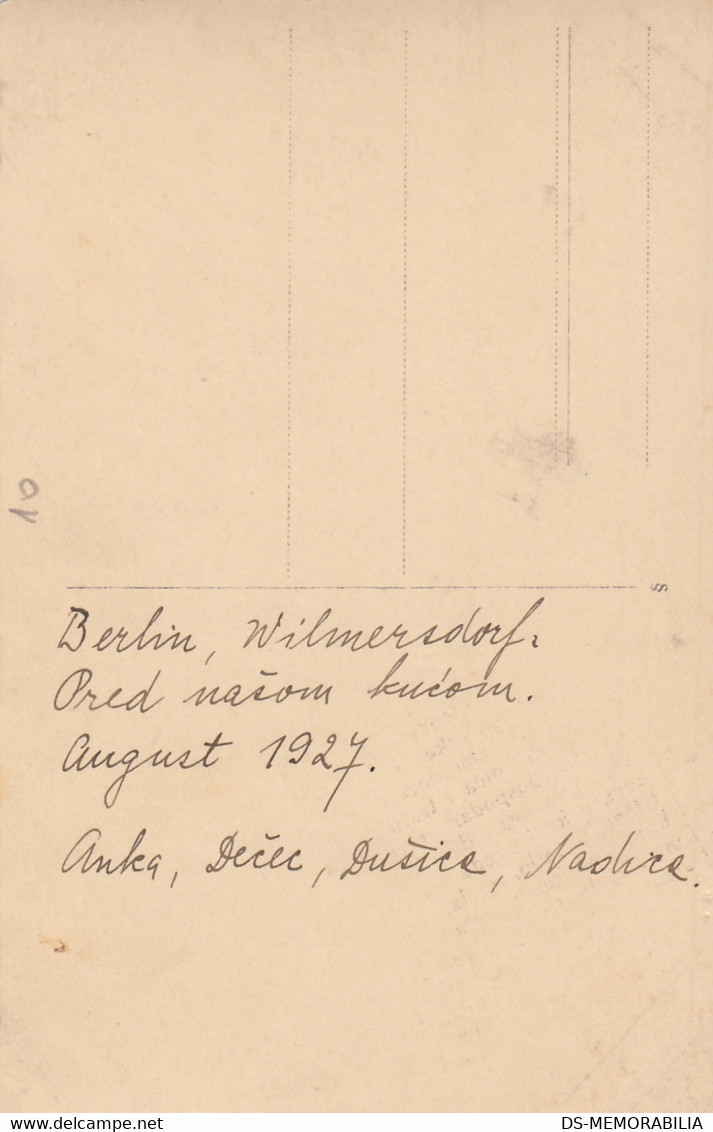 10
Berlin, Wilmersdorf.
Pred našom kućom.
August 1927.
Anka, Dečec, Dušica, Nadica.
delcampe.net
DS-MEMORABILIA